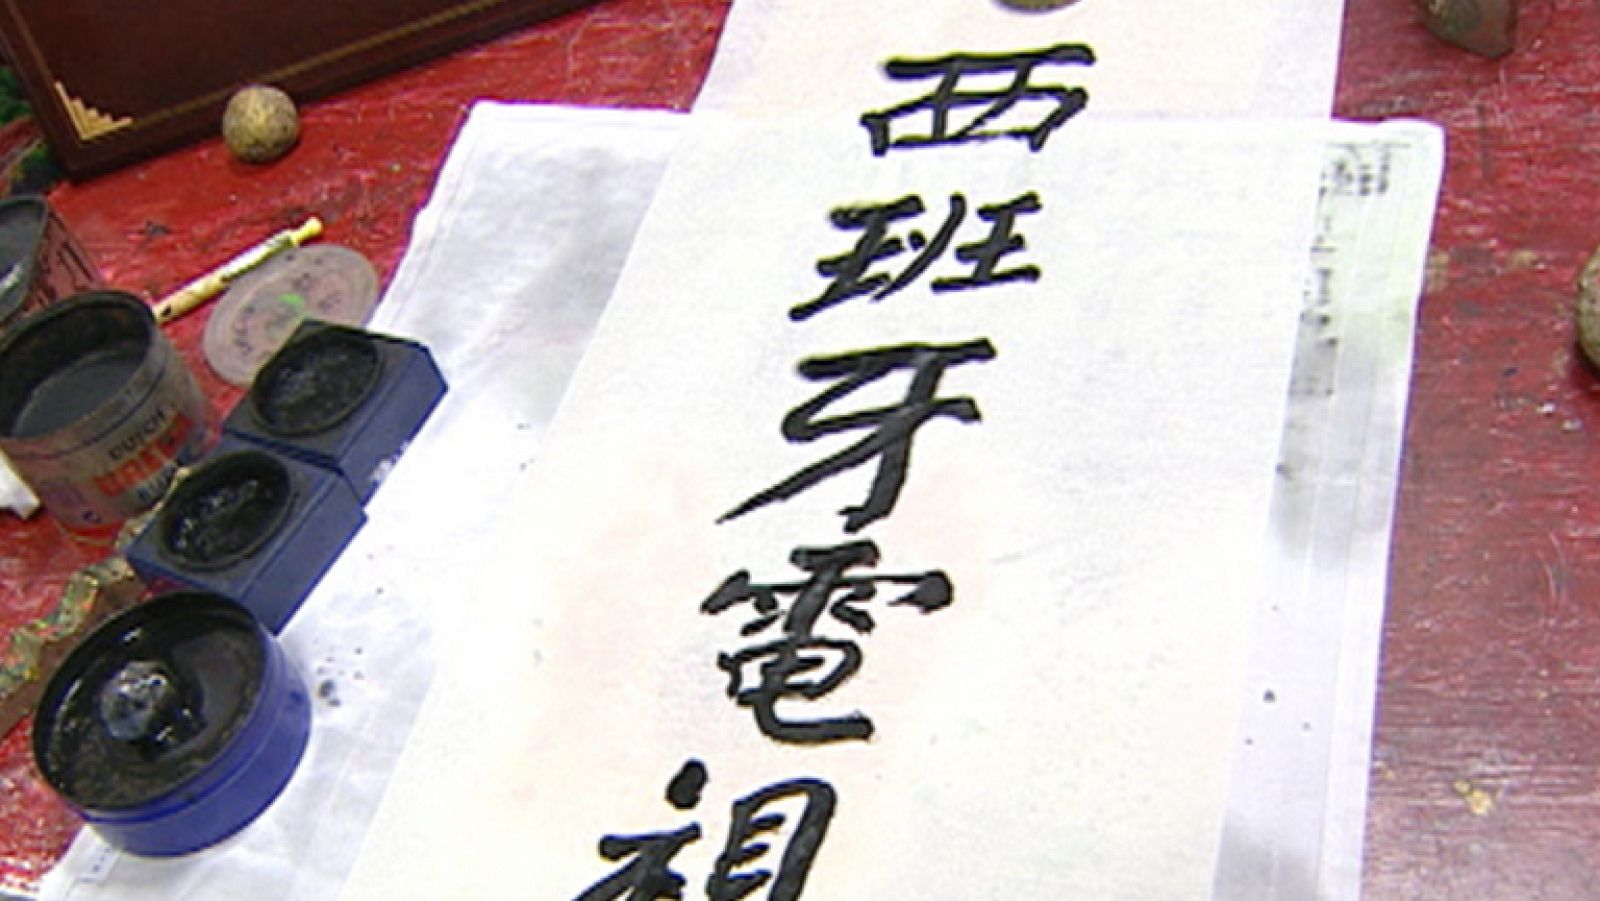 西班牙電視
DUTCH